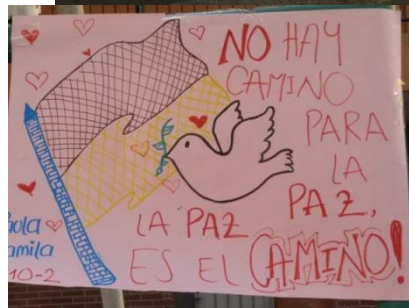 NO HAY
CAMINO
PARA
LA
PAZ,
LA PAZ
ES EL CAMINO!
amila
10-2